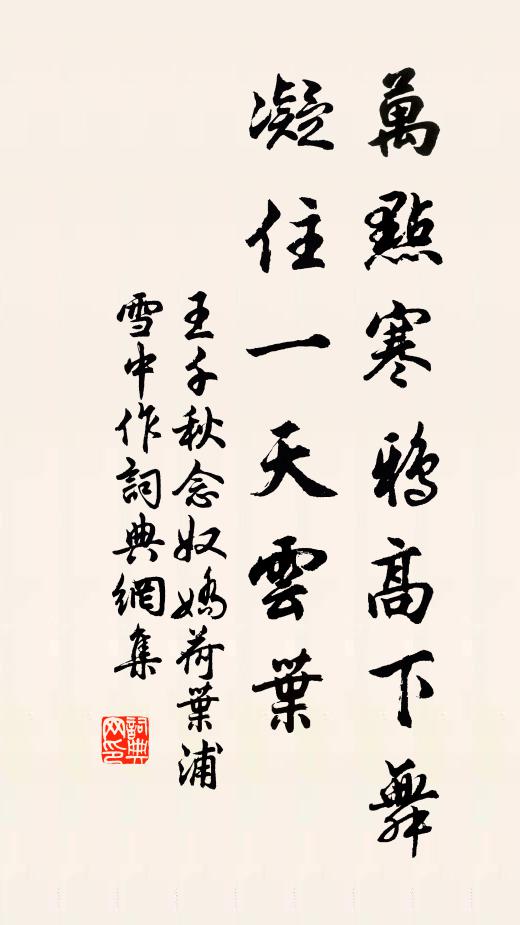 萬點寒鴉高下舞
凝住一天雲葉
王千秋念奴嬌荷葉浦
雪中作詞典網集
詞典網印